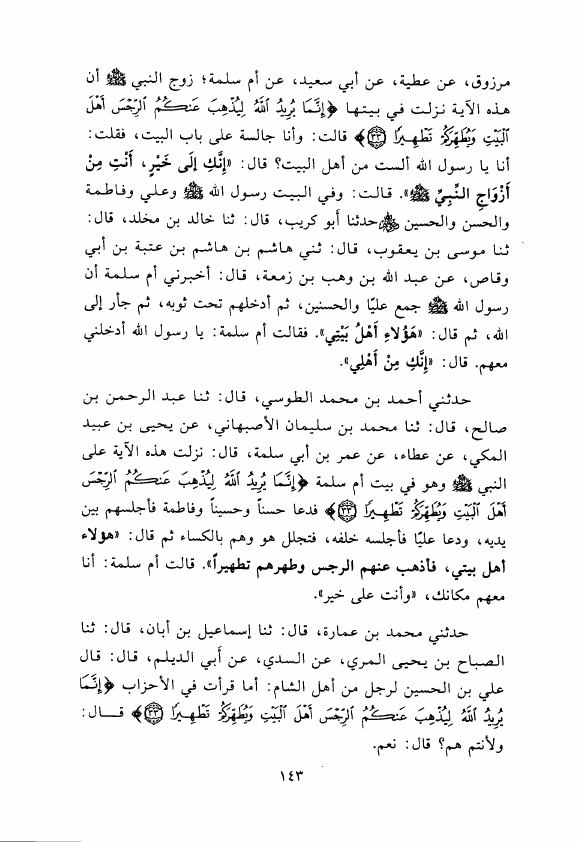 مرزوق، عن عطية، عن أبي سعيد، عن أم سلمة؛ زوج النبي ﷺ أن
هذه الآية نزلت في بيتها ﴿إِنَّمَا يُرِيدُ اللَّهُ لِيُذْهِبَ عَنكُمُ الرِّجْسَ أَهْلَ
الْبَيْتِ وَيُطَهِّرَكُمْ تَطْهِيرًا ﴿٣٣﴾﴾ قالت: وأنا جالسة على باب البيت، فقلت:
أنا يا رسول الله ألست من أهل البيت؟ قال: «إِنَّكِ إِلَى خَيْرٍ، أَنْتِ مِنْ
أَزْوَاجِ النَّبِيِّ ﷺ». قالت: وفي البيت رسول الله ﷺ وعلي وفاطمة
والحسن والحسين حدثنا أبو كريب، قال: ثنا خالد بن مخلد، قال:
ثنا موسى بن يعقوب، قال: ثني هاشم بن هاشم بن عتبة بن أبي
وقاص، عن عبد الله بن وهب بن زمعة، قال: أخبرني أم سلمة أن
رسول الله ﷺ جمع عليًا والحسنين، ثم أدخلهم تحت ثوبه، ثم جأر إلى
الله، ثم قال: «هَؤُلاءِ أَهْلُ بَيْتِي». فقالت أم سلمة: يا رسول الله أدخلني
معهم. قال: «إِنَّكِ مِنْ أَهْلِي».
حدثني أحمد بن محمد الطوسي، قال: ثنا عبد الرحمن بن
صالح، قال: ثنا محمد بن سليمان الأصبهاني، عن يحيى بن عبيد
المكي، عن عطاء، عن عمر بن أبي سلمة، قال: نزلت هذه الآية على
النبي ﷺ وهو في بيت أم سلمة ﴿إِنَّمَا يُرِيدُ اللَّهُ لِيُذْهِبَ عَنكُمُ الرِّجْسَ
أَهْلَ الْبَيْتِ وَيُطَهِّرَكُمْ تَطْهِيرًا ﴿٣٣﴾﴾ فدعا حسناً وحسيناً وفاطمة فأجلسهم بين
يديه، ودعا عليًا فأجلسه خلفه، فتجلل هو وهم بالكساء ثم قال: «هؤلاء
أهل بيتي، فأذهب عنهم الرجس وطهرهم تطهيراً». قالت أم سلمة: أنا
معهم مكانك، «وأنت على خير».
حدثني محمد بن عمارة، قال: ثنا إسماعيل بن أبان، قال: ثنا
الصباح بن يحيى المري، عن السدي، عن أبي الديلم، قال: قال
علي بن الحسين لرجل من أهل الشام: أما قرأت في الأحزاب ﴿إِنَّمَا
يُرِيدُ اللَّهُ لِيُذْهِبَ عَنكُمُ الرِّجْسَ أَهْلَ الْبَيْتِ وَيُطَهِّرَكُمْ تَطْهِيرًا ﴿٣٣﴾﴾ قـال:
ولأنتم هم؟ قال: نعم.
١٤٣